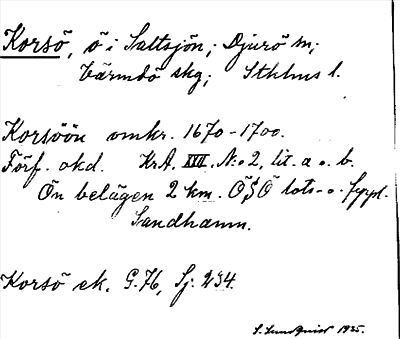 Korsö, ö i Saltsjön; Djurö sn;
Värmdö skg; Sthlms l.
Korsöön omkr. 1670-1700.
Förf. okd. KrA. XVII. N:o 2, lit. a o. b.
Ön belägen 2 km. ÖSÖ lots- o. fyrpl.
Sandhamn.
Korsö ek. G. 76, Sj. 234.
S. Lundqvist 1925.